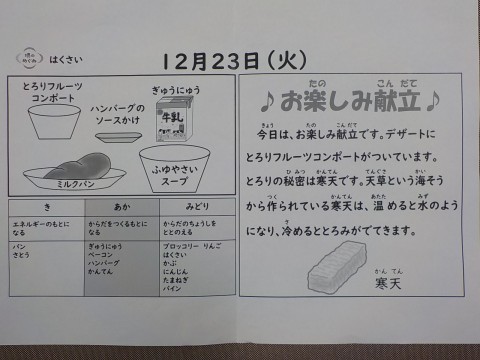 増のめぐみ はくさい
12月23日(火)
とろりフルーツ
コンポート
ハンバーグの
ソースかけ
ぎゅうにゅう
牛乳
ミルクパン
ふゆやさい
スープ
き あか みどり
エネルギーのもとに
なる
からだをつくるもとに
なる
からだのちょうしを
ととのえる
パン
さとう
ぎゅうにゅう
ベーコン
ハンバーグ
かんてん
ブロッコリー りんご
はくさい
かぶ
にんじん
たまねぎ
パイン
♪お楽しみ献立♪
たの こん だて
今日は、お楽しみ献立です。デザートに
きょう たの こんだて
とろりフルーツコンポートがついています。
とろりの秘密は寒天です。天草という海そう
ひみつ かんてん てんぐさ かい
から作られている寒天は、温めると水のよう
つく かんてん あたた みず
になり、冷めるととろみがでてきます。
さ
かん てん
寒天